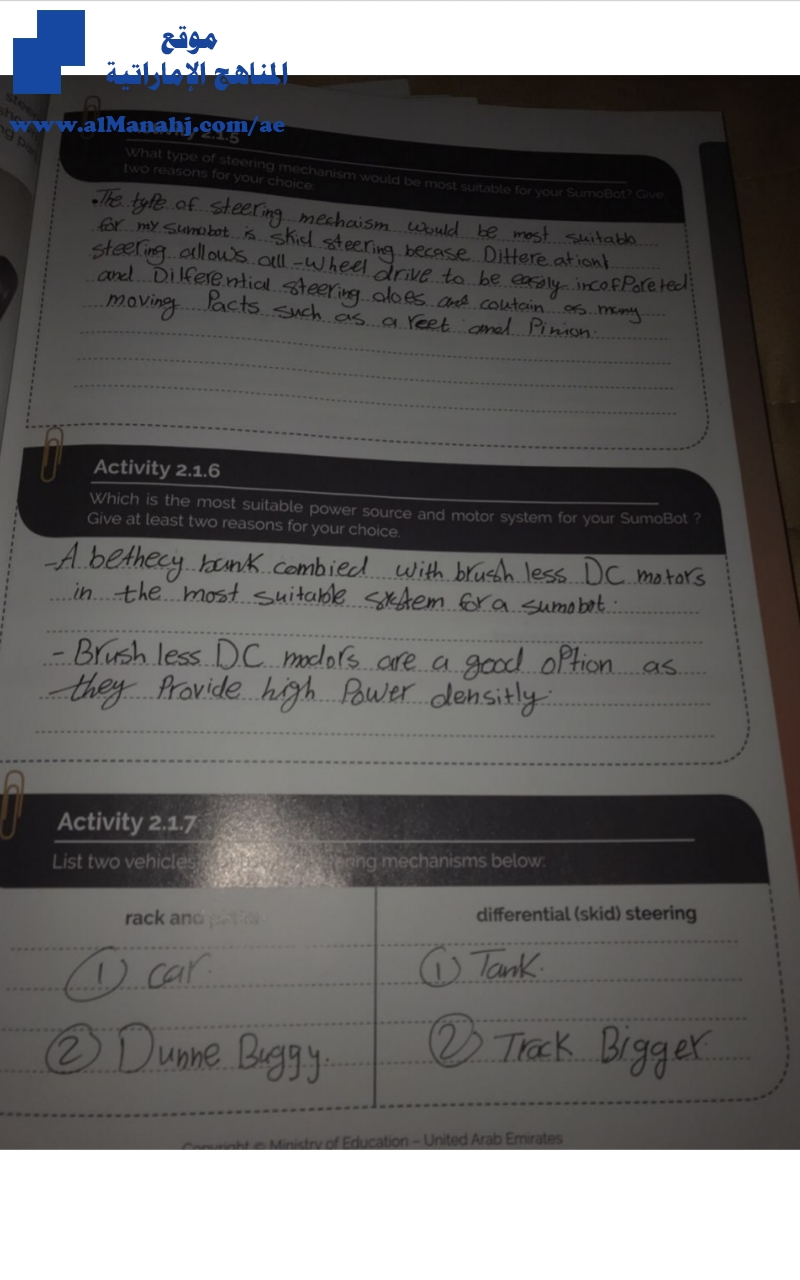 موقع
المناهج الإماراتية
www.alManahj.com/ae
2.1.5
What type of steering mechanism would be most suitable for your SumoBot? Give
two reasons for your choice:
•The type of steering mechaism would be most suitable
for my sumobot is skid steering becase
steering allows all-wheel drive to be easily
and Differential steering does and coutain as many
moving Pacts such as a reet and Pinion.
Activity 2.1.6
Which is the most suitable power source and motor system for your SumoBot ?
Give at least two reasons for your choice.
-A bethecy bank combied with brush less DC motors
in the most suitable system for a sumobot.
- Brush less DC modors are a good option as
they Provide high Power densitly.
Activity 2.1.7
List two vehicles mechanisms below:
rack and
differential (skid) steering
① car.
① Tank.
② Dunne Buggy.
② Track Bigger.
Copyright © Ministry of Education – United Arab Emirates